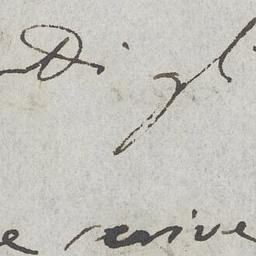 Di gl
e scrive